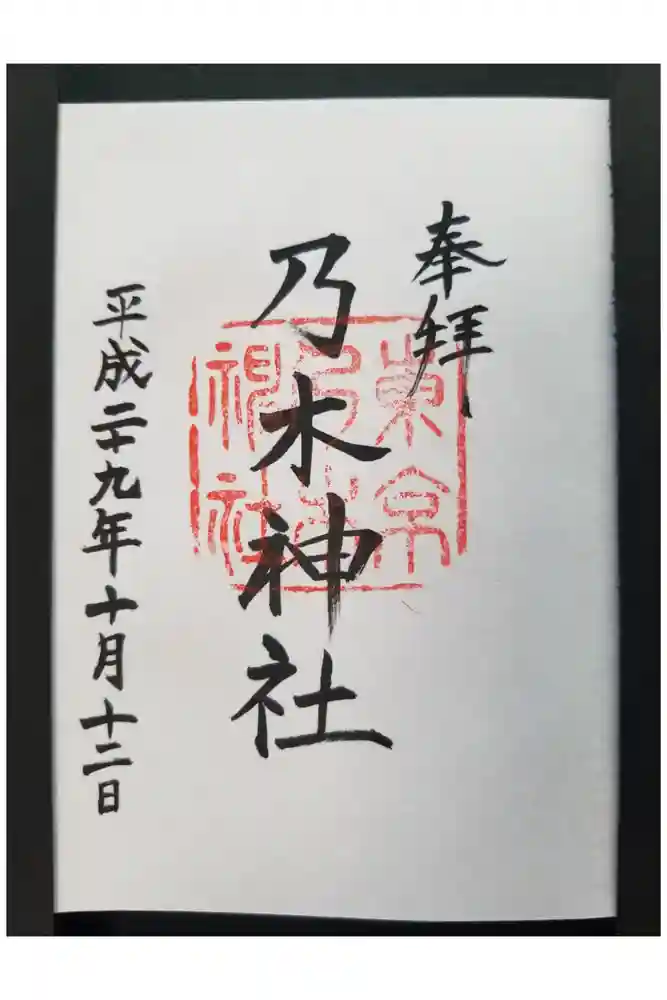 奉拝
乃木神社
東京
乃木
神社
平成二十九年十月十二日